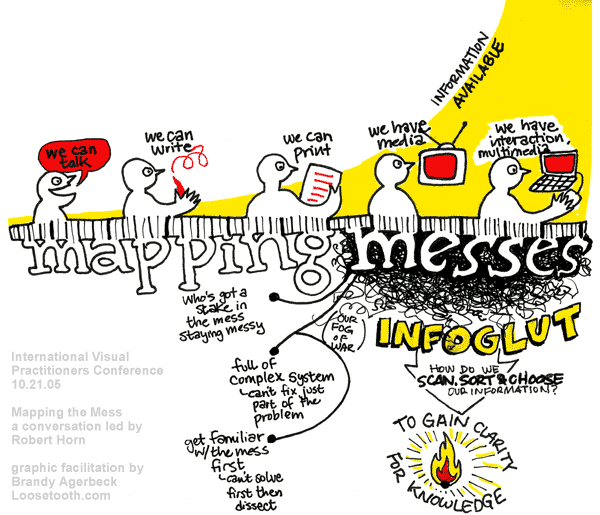 INFORMATION
AVAILABLE
we can
talk
we can
write
we can
print
we have
media
we have
interaction,
multimedia
mapping messes
WHO'S GOT A
STAKE IN
THE MESS
STAYING MESSY
OUR
FOG
OF
WAR
INFOGLUT
HOW DO WE
SCAN, SORT & CHOOSE
OUR INFORMATION?
full of
complex system
can't fix just
part of the
problem
get familiar
w/the mess
first
can't solve
first then
dissect
TO GAIN CLARITY
FOR KNOWLEDGE
International Visual
Practitioners Conference
10.21.05
Mapping the Mess
a conversation led by
Robert Horn
graphic facilitation by
Brandy Agerbeck
Loosetooth.com